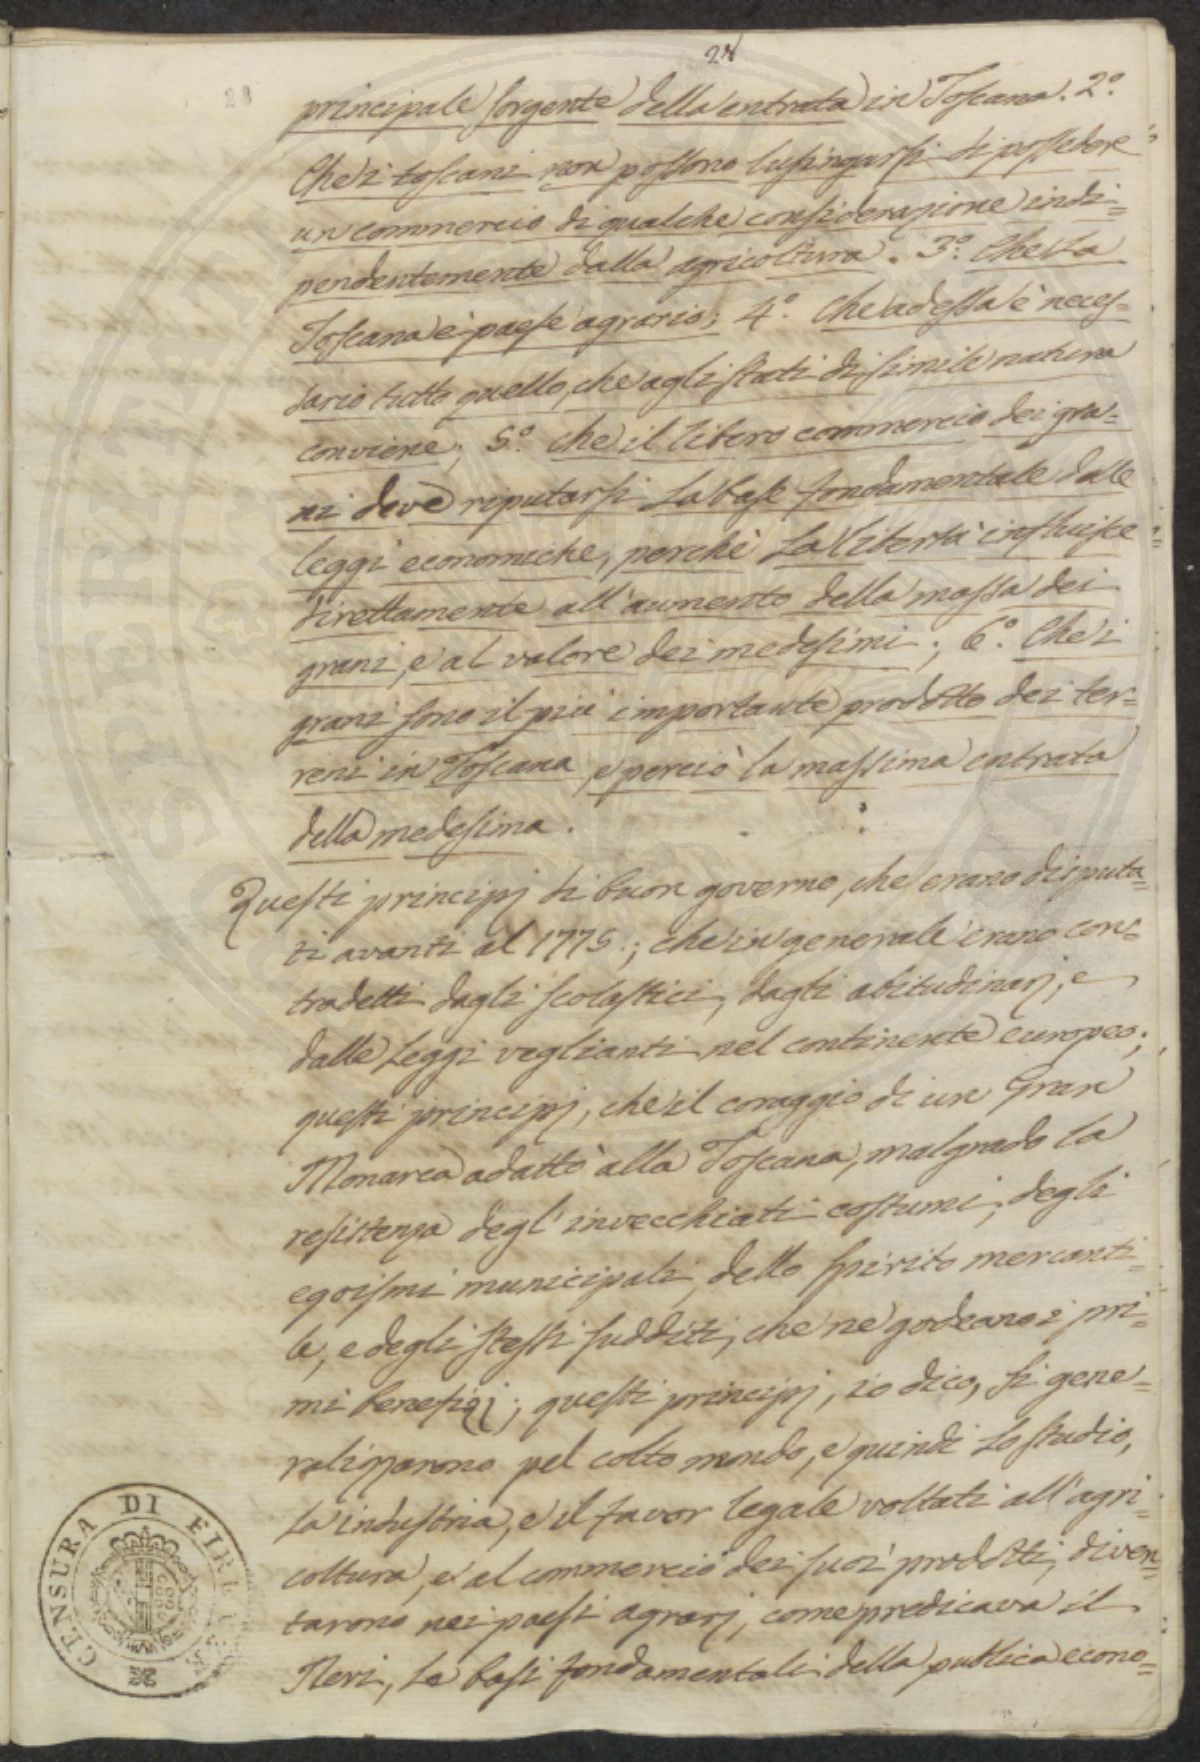 28
principale sorgente della entrata in Toscana. 2°.
Che i toscani non possono lusingarsi di possedere
un commercio di qualche considerazione indi=
pendentemente dalla agricoltura. 3°. Che la
Toscana è paese agrario; 4°. Che ad essa è neces=
sario tutto quello, che agli stati di simile natura
conviene; 5°. che il libero commercio dei gra=
ni deve riputarsi La base fondamentale delle
leggi economiche, perchè La libertà influisce
direttamente all'aumento della massa dei
grani, e al valore dei medesimi; 6°. Che i
grani sono il più importante prodotto dei ter=
reni in Toscana, e perciò la massima entrata
della medesima.
Questi principj di buon governo, che erano disputa=
ti avanti al 1775.; che in generale erano con=
tradetti dagli scolastici, dagli abitudinarj, e
dalle Leggi veglianti nel continente europeo;
questi principj, che il coraggio di un Gran
Monarca adattò alla Toscana, malgrado la
resistenza degl'invecchiati costumi, degli
egoismi municipali, dello spirito mercanti=
le, e degli stessi sudditi, che ne godeano i pri=
mi benefizj; questi principj, io dico, si gene=
ralizzarono pel colto mondo, e quindi Lo studio,
La industria, e il favor legale voltati all'agri=
coltura, e al commercio dei suoi prodotti, diven=
tarono nei paesi agrarj, come predicava il
Neri, Le basi fondamentali della publica econo=
CENSURA DI FIRENZE